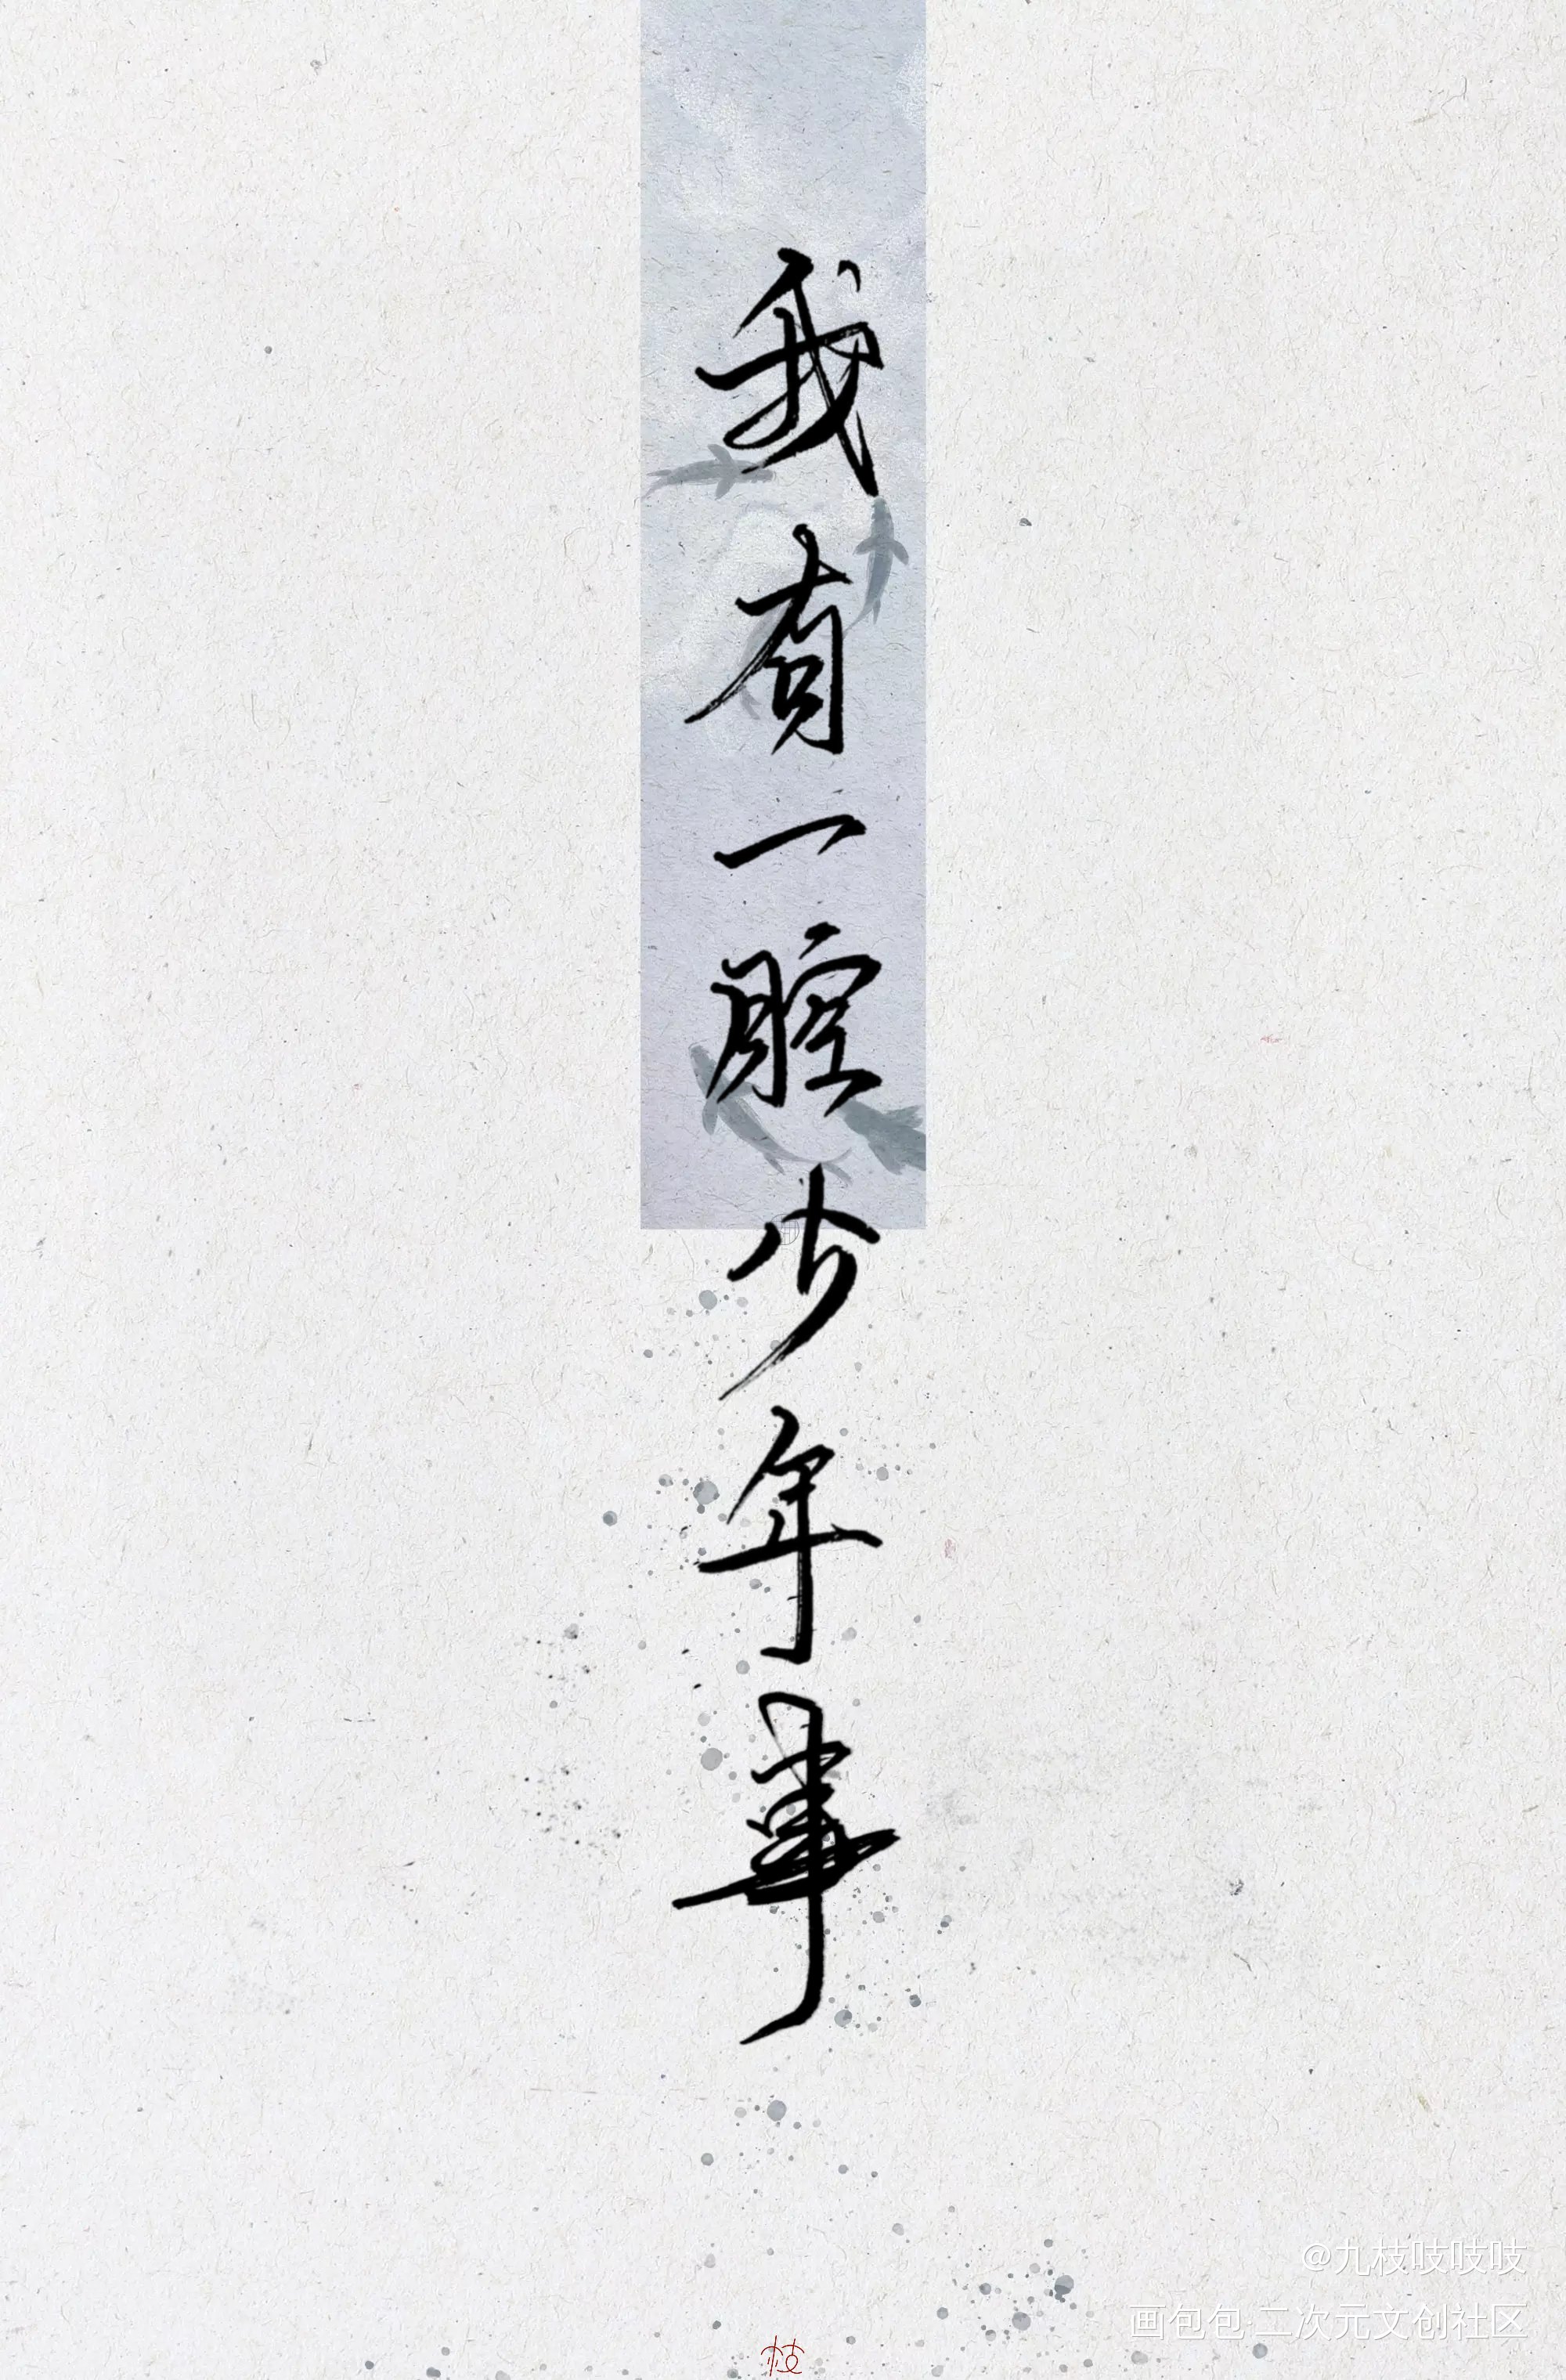 我有一腔少年事
@九枝吱吱吱
画包包·二次元文创社区
枝